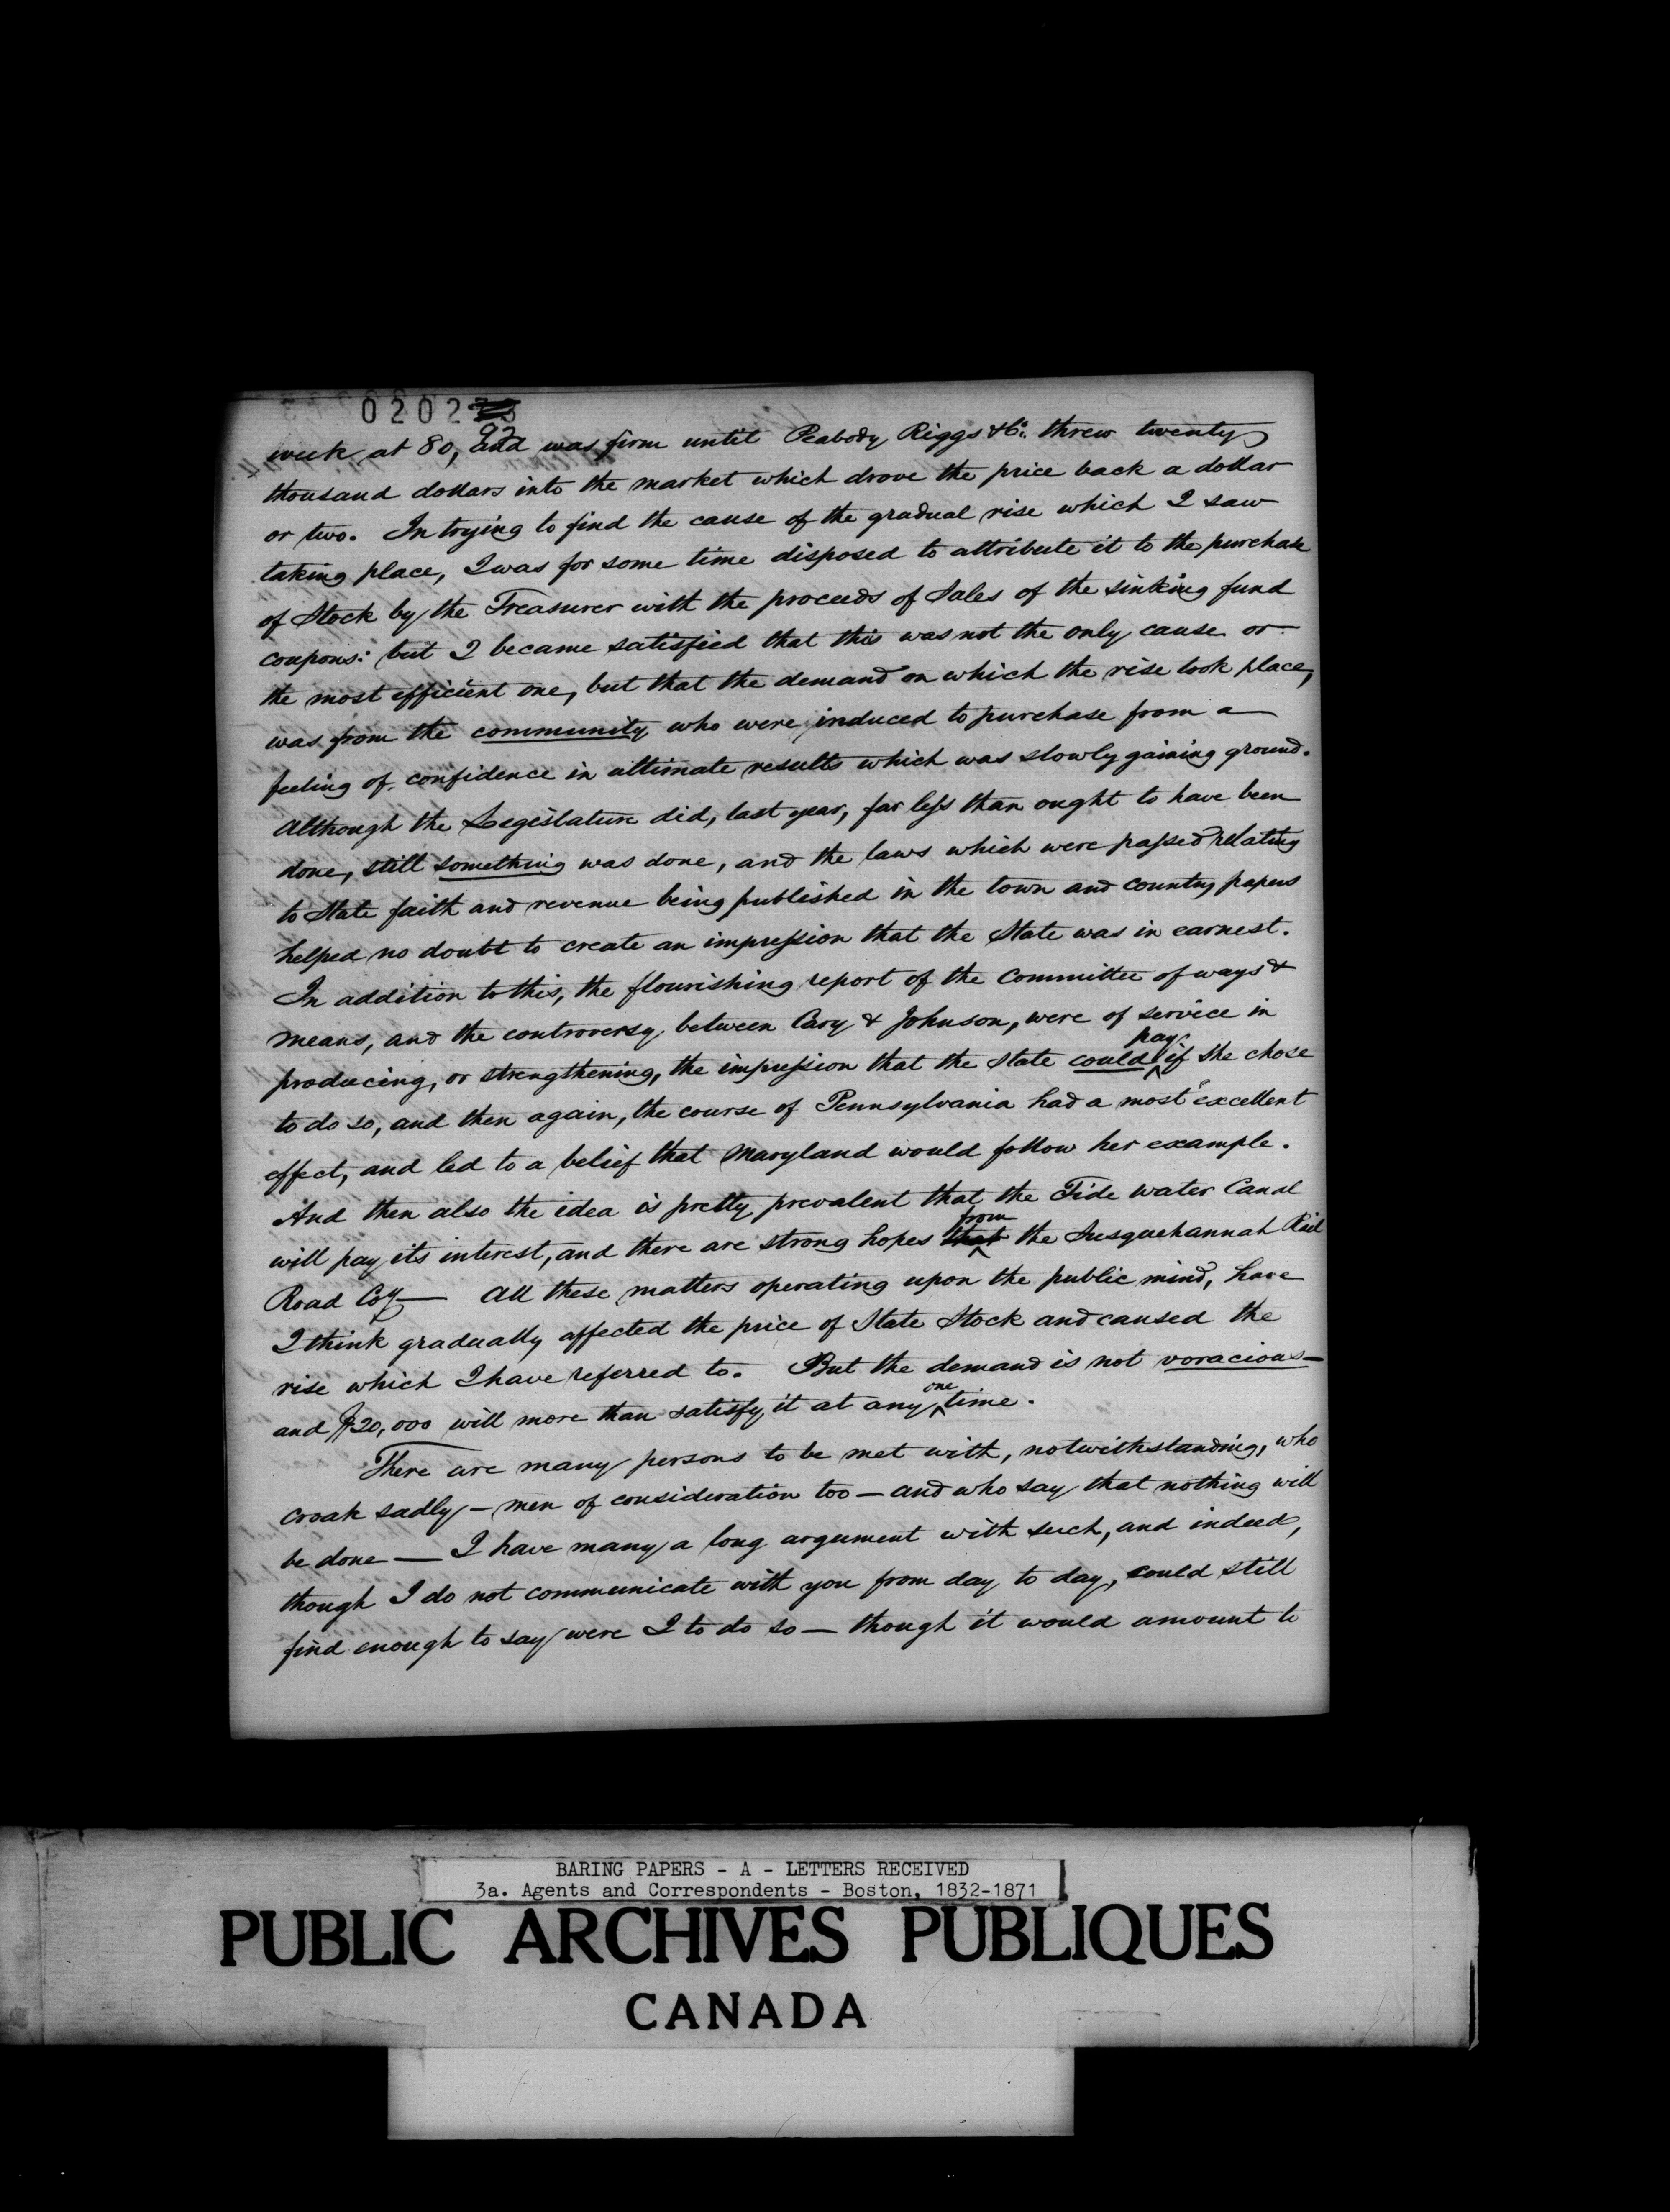 0202
week at 80, and was firm until Peabody Riggs & Co. threw twenty
thousand dollars into the market which drove the price back a dollar
or two. In trying to find the cause of the gradual rise which I saw
taking place, I was for some time disposed to attribute it to the purchase
of Stock by the Treasurer with the proceeds of Sales of the sinking fund
coupons: but I became satisfied that this was not the only cause or
the most efficient one, but that the demand on which the rise took place,
was from the community who were induced to purchase from a
feeling of confidence in ultimate results which was slowly gaining ground.
Although the Legislature did, last year, far less than ought to have been
done, still something was done, and the laws which were passed relating
to State faith and revenue being published in the town and country papers
helped no doubt to create an impression that the State was in earnest.
In addition to this, the flourishing report of the Committee of ways &
means, and the controversy between Cary & Johnson, were of service in
producing, or strengthening, the impression that the State could pay if she chose
to do so, and then again, the course of Pennsylvania had a most excellent
effect, and led to a belief that Maryland would follow her example.
And then also the idea is pretty prevalent that the Tide Water Canal
will pay its interest, and there are strong hopes that from the Susquehannah Rail
Road Coy— All these matters operating upon the public mind, have
I think gradually affected the price of State Stock and caused the
rise which I have referred to. But the demand is not voracious—
and $20,000 will more than satisfy it at any one time.
There are many persons to be met with, notwithstanding, who
croak sadly — men of consideration too — and who say that nothing will
be done — I have many a long argument with such, and indeed,
though I do not communicate with you from day to day, could still
find enough to say were I to do so — though it would amount to
BARING PAPERS - A - LETTERS RECEIVED
3a. Agents and Correspondents - Boston, 1832-1871
PUBLIC ARCHIVES PUBLIQUES
CANADA